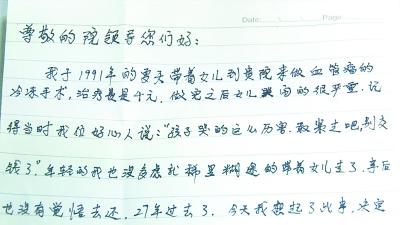 Date: Page
尊敬的院领导您们好:
我于1991年的夏天带着女儿到贵院来做血管瘤的
冷冻手术,治疗费是千元.做完之后女儿哭闹的很严重.记
得当时我位好心人说:"孩子哭的这么厉害.敢紧走吧,别交
钱了."年轻的我也没多虑就稀里糊透的带着女儿走了.事后
也没有觉悟去还.27年过去了.今天我想起了此事.决定